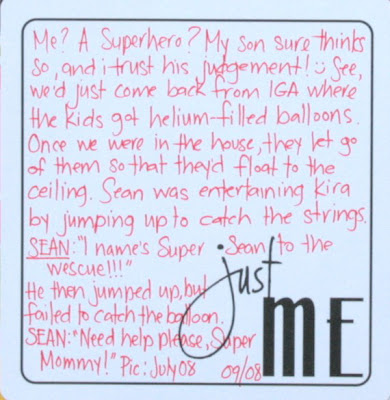 Me? A Superhero? My son sure thinks
so, and i trust his judgement! See,
we'd just come back from IGA where
the kids got helium-filled balloons.
Once we were in the house, they let go
of them so that they'd float to the
ceiling. Sean was entertaining Kira
by jumping up to catch the strings.
SEAN: "I name's Super • Sean to the
wescue!!!"
He then jumped up, but
failed to catch the balloon.
SEAN: "Need help please, Super
Mommy!" Pic: July 08 09/08
just
ME